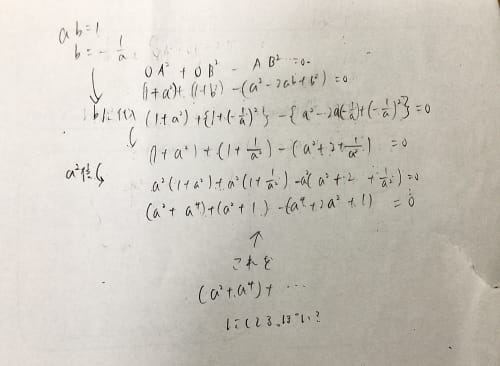 ab=1
b=-1/a
OA²+OB²-AB²=0
(1+a²)+(1+b²)-(a²-2ab+b²)=0
bに代入 (1+a²)+{1+(-1/a)²}-{a²-2a(-1/a)+(-1/a)²}=0
(1+a²)+(1+1/a²)-(a²+2+1/a²)=0
a²(1+a²)+a²(1+1/a²)-a²(a²+2+1/a²)=0
(a²+a⁴)+(a²+1)-(a⁴+2a²+1)=0
↑
これを
(a²+a⁴)+…